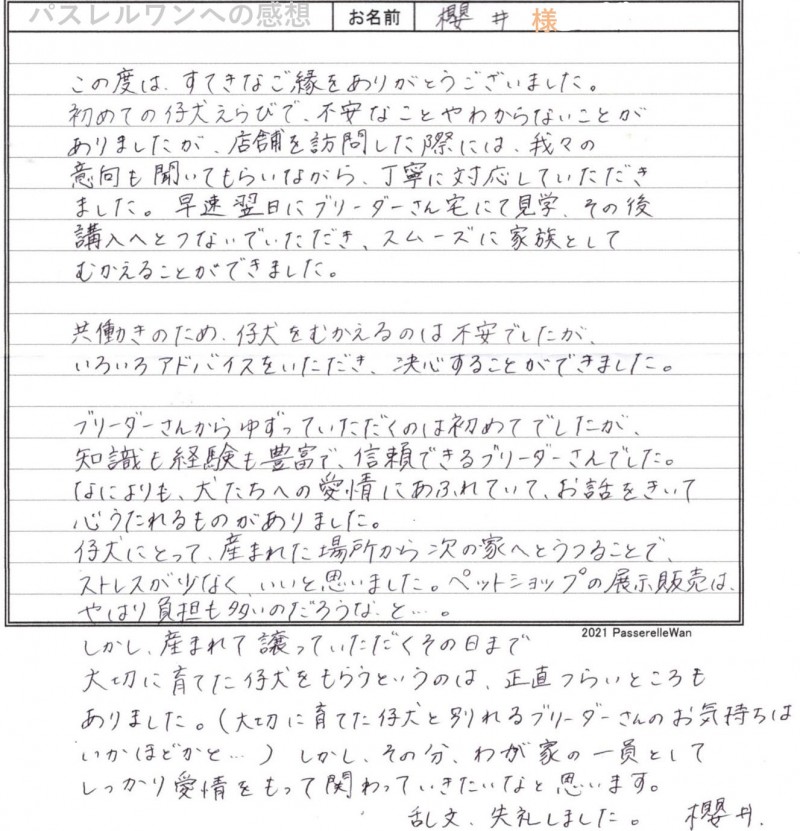 パスレルワンへの感想 お名前 櫻井 様
この度は、すてきなご縁をありがとうございました。
初めての仔犬えらびで、不安なことやわからないことが
ありましたが、店舗を訪問した際には、我々の
意向も聞いてもらいながら、丁寧に対応していただき
ました。早速翌日にブリーダーさん宅にて見学、その後
講入へとつないでいただき、スムーズに家族として
むかえることができました。
共働きのため、仔犬をむかえるのは不安でしたが、
いろいろアドバイスをいただき、決心することができました。
ブリーダーさんからゆずっていただくのは初めてでしたが、
知識も経験も豊富で、信頼できるブリーダーさんでした。
なによりも、犬たちへの愛情にあふれていて、お話をきいて
心うたれるものがありました。
仔犬にとって、産まれた場所から次の家へとうつることで、
ストレスが少なく、いいと思いました。ペットショップの展示販売は、
やはり負担も多いのだろうな、と…。
2021 PasserelleWan
しかし、産まれて譲っていただくその日まで
大切に育てた仔犬をもらうというのは、正直つらいところも
ありました。(大切に育てた仔犬と別れるブリーダーさんのお気持ちは
いかほどかと…)しかし、その分、わが家の一員として
しっかり愛情をもって関わっていきたいなと思います。
乱文、失礼しました。 櫻井.